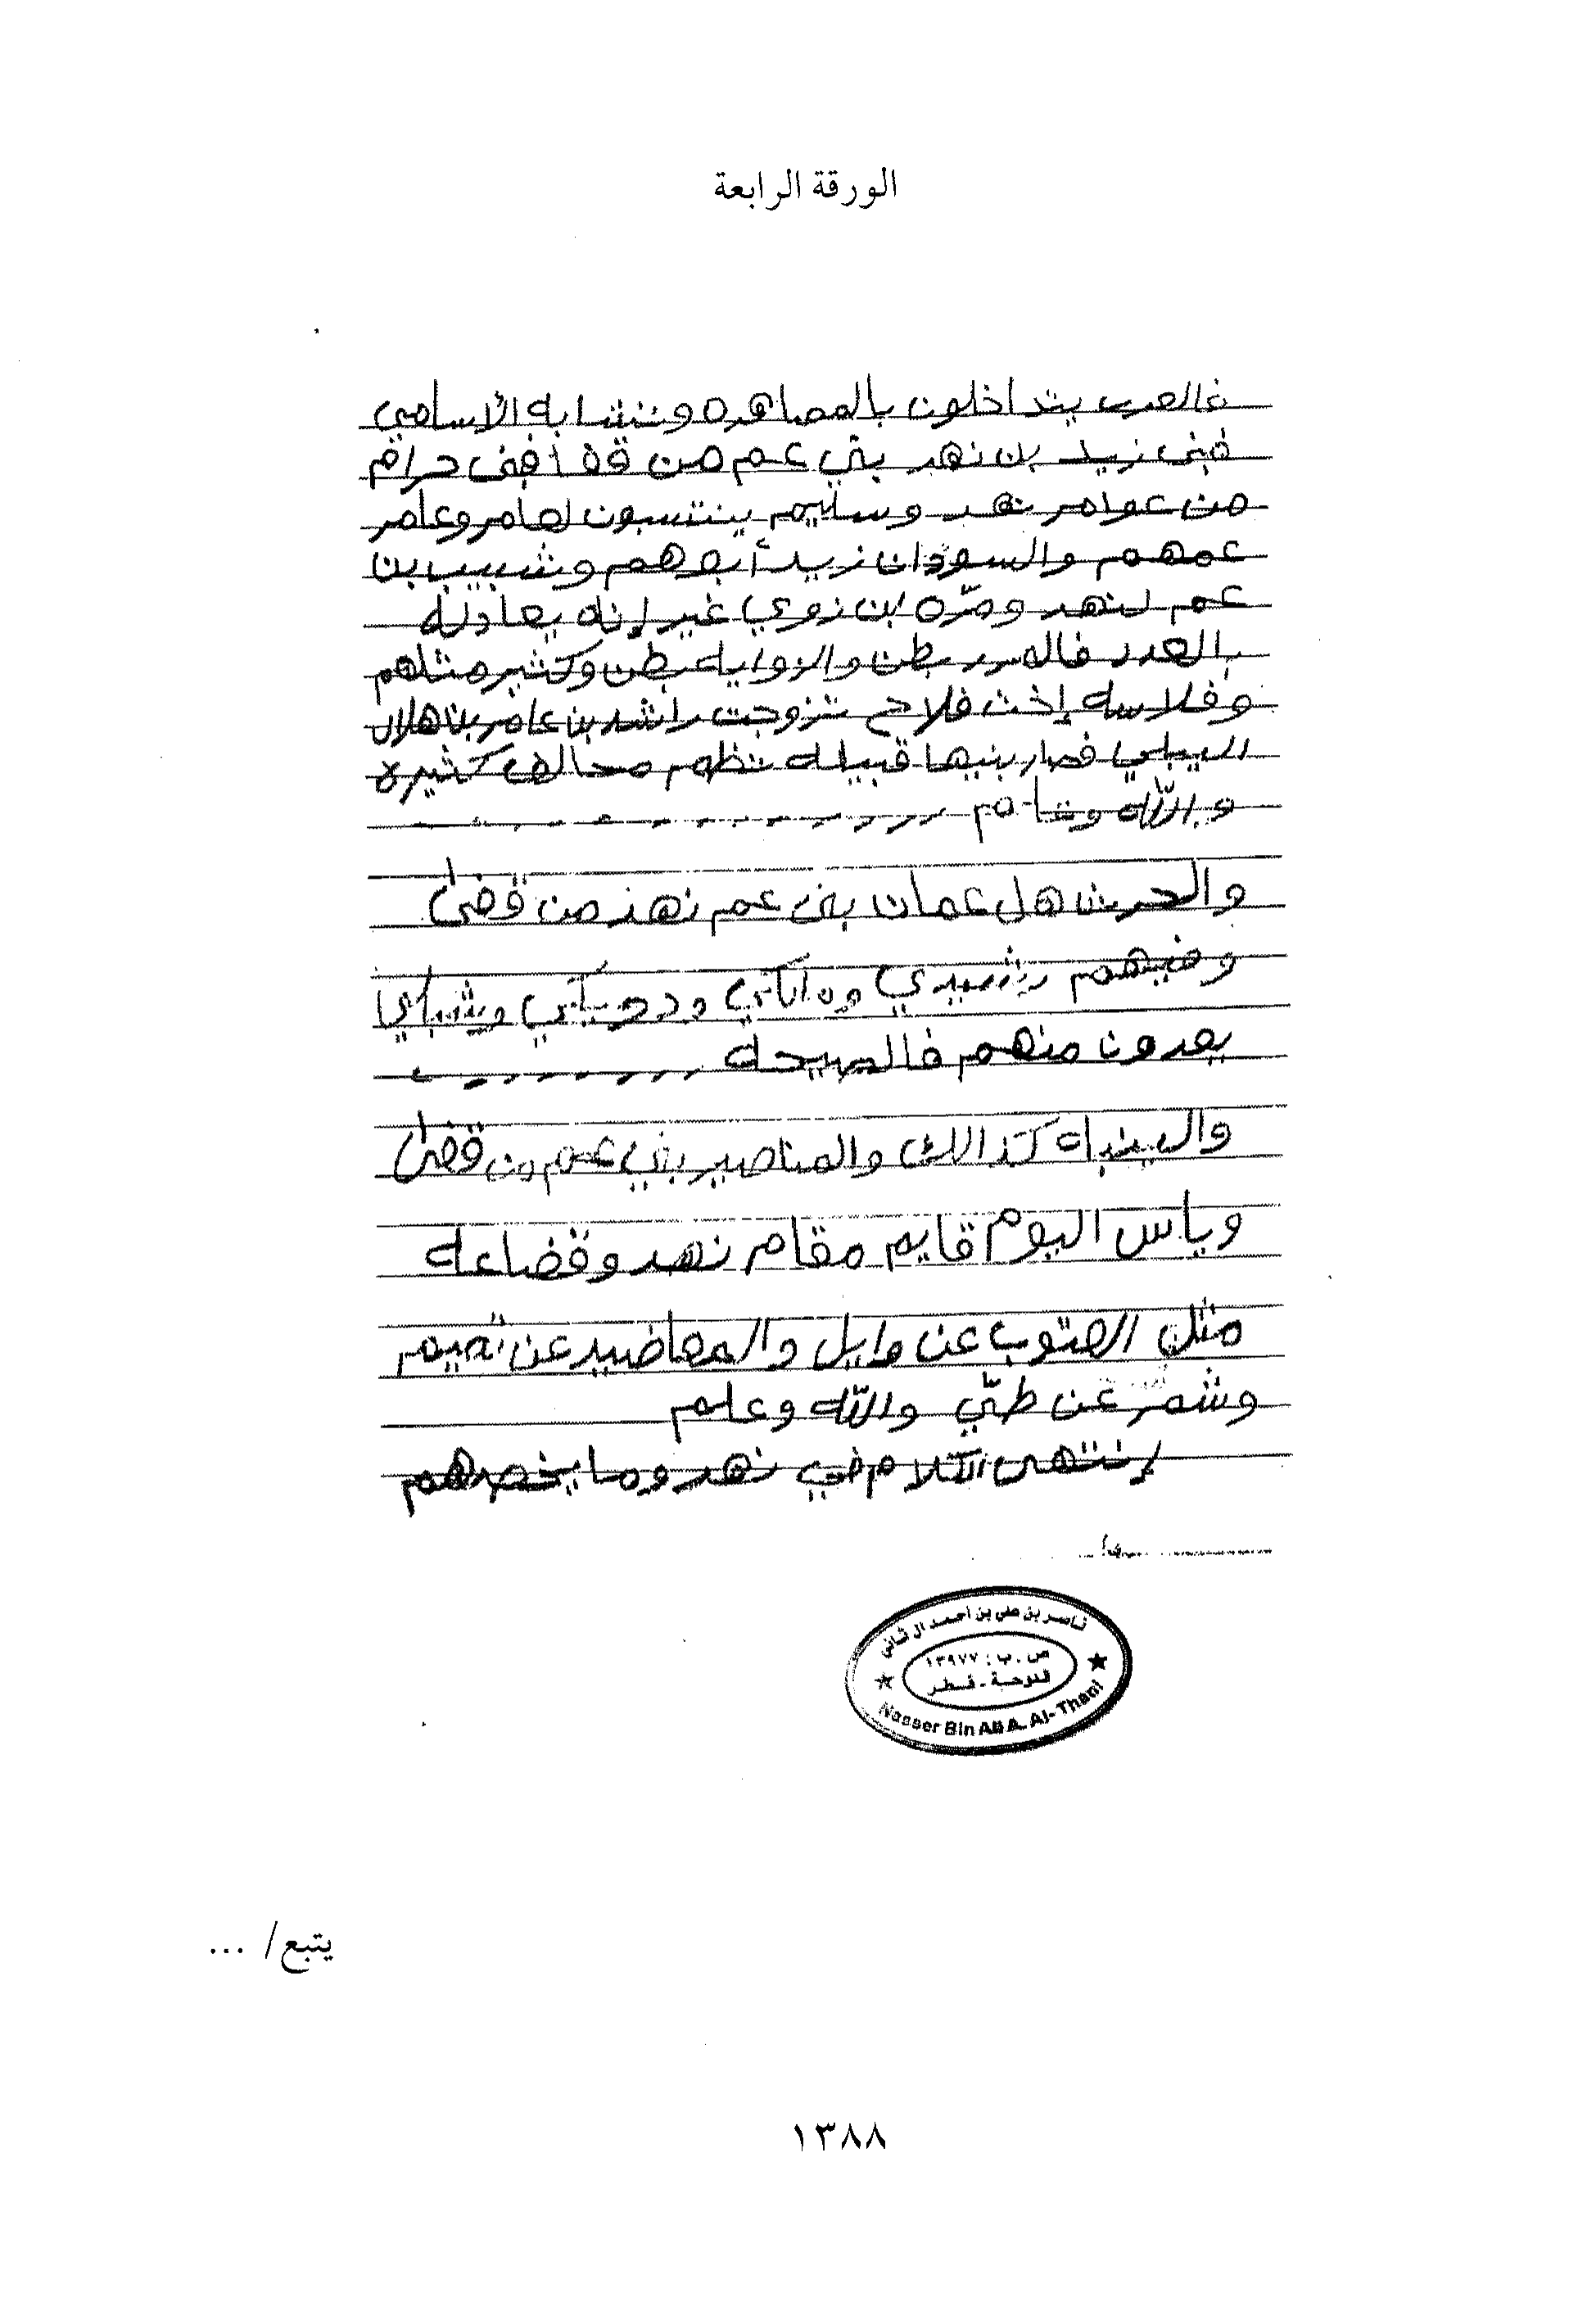 الورقة الرابعة
فالعرب يتداخلون بالمصاهره وتتشابه الأسامي
فبني زيد بن نهد بني عم من قة أفهى حرام
من عوامر نهد وسليم ينتسبون لعامر وعامر
عمهم والسودان زيد أبوهم وشبيب بن
عم لنهد ومرّه ابن زوي غير إنه يعادله
بالعدد فالمرر بطن والزوايه بطن وكثير مثلهم
وفلاسه إخت فلاح تزوجت راشد بن عامر بن هلال
اليبلي فصار بنيها قبيله تظهم محالف كثيره
والله وعلم
والحرث هل عمان بني عم نهد من قضا
وفيهم رشيدي ومالكي ودحبكي وشبلي
يعدون منهم فالصيحه
والينباه كذالك والمناصير بني عم من قضا
وياس اليوم قايم مقام نهد وقضاعه
مثل العتوب عن وايل والمعاضيد عن تميم
وشمر عن طيّ والله وعلم
إنتهى الكلام في نهد وما يخصهم
ناصر بن علي بن أحمد ال ثاني
ص.ب : ١٣٩٧٧
الدوحة - قطر
Nasser Bin Ali A. Al-Thani
يتبع/ ...
١٣٨٨